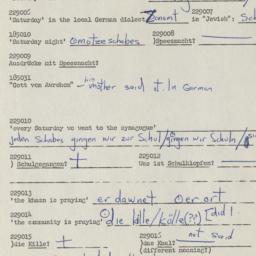 229006 229007
'Saturday' in the local German dialect Zonomt in "Jewish":
185010 229008
'Saturday night' omotzeschabes ) Speesnacht?
229009
Ausdrücke mit Speesnacht?
185031
"Gott von Awrohom" - mother said it in German
229010
'every Saturday we went to the synagogue'
jeden Schabes gingen wir zum Schul/gingen wir Schuln/
229011 229012
) Schulgegangen? + Was ist Schulklopfen?
229013
'the khazn is praying' er dawnet oer ort
229014
'the community is praying' die kille/kolle(??) [did I
229015 229016
)die Kille? + )das Kool? not said
(different meaning?)